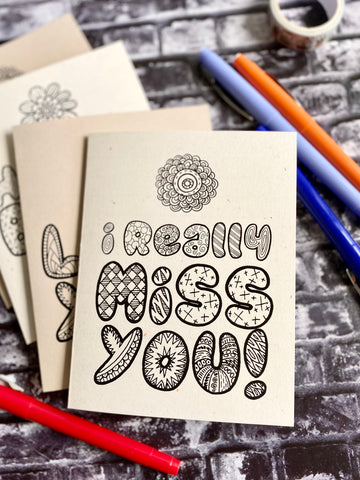 i Really
MiSS
YOU!